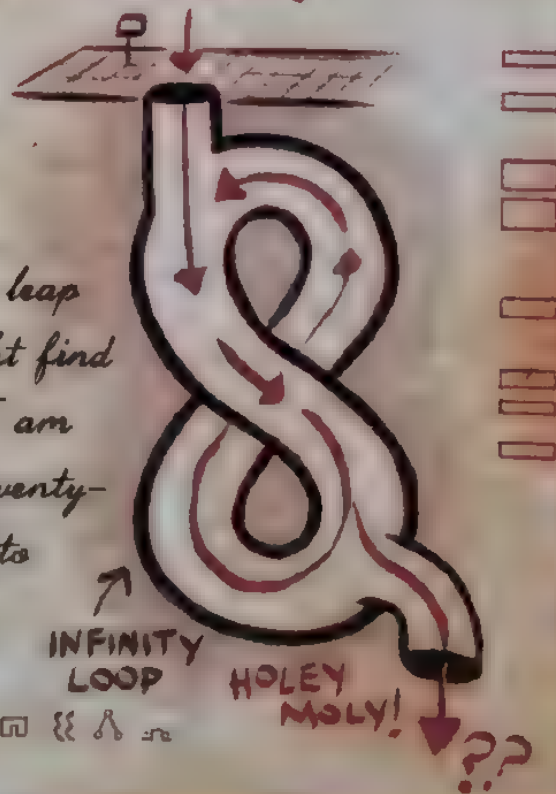 leap
find
am
to
INFINITY
LOOP
HOLEY
MOLY!
??